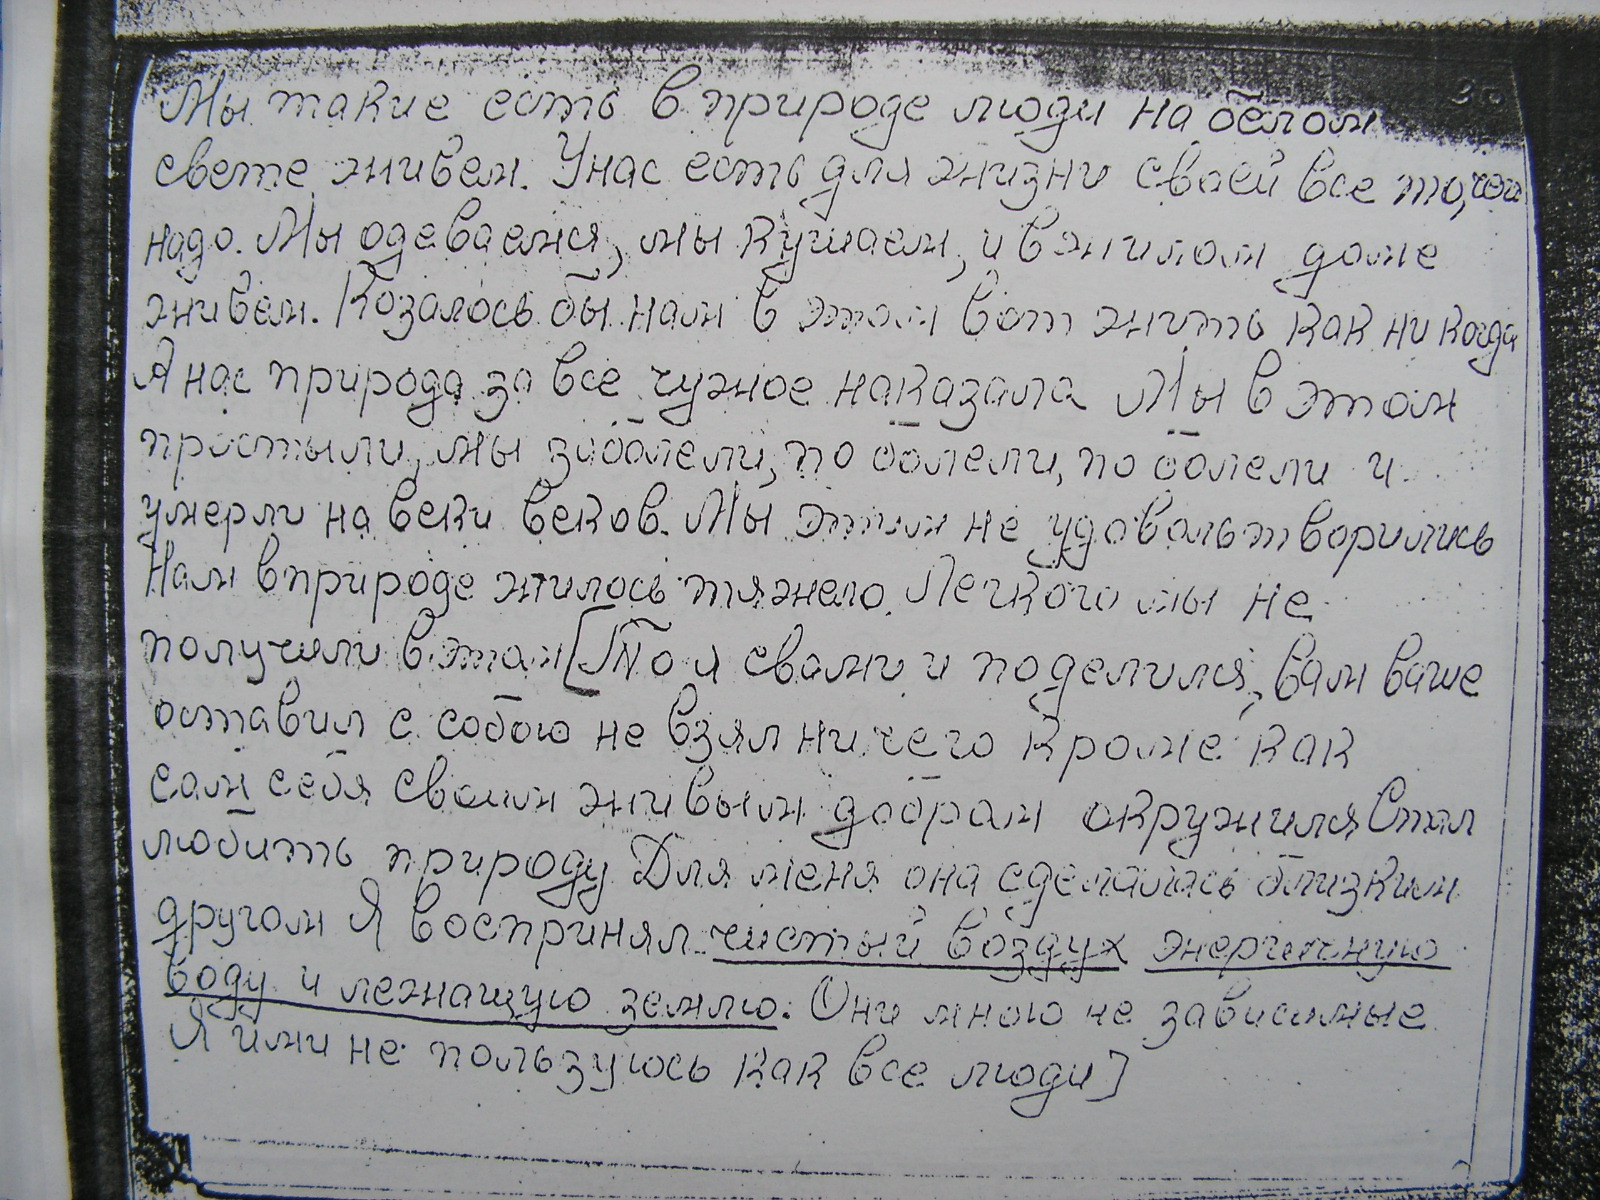 Мы такие есть в природе люди на белом
свете живем. Унас есть для жизни своей все то, чего
надо. Мы одеваемся, мы кушаем, и в жилом доме
живем. Козалось бы нам в этом вот жить как ни когда
А нас природа за все чужое наказала Мы в этом
простыли, мы заболели, по болели, по болели и
умерли на веки веков. Мы этим не удовольтворились
Нам в природе жилось тяжело. Легкого мы не
получили в этом [То я свами и поделился, вам ваше
оставил с собою не взял ни чего кроме как
сам себя своим живым добром окружился Стал
любить природу Для меня она сделалась близким
другом Я воспринял чистый воздух энергичную
воду и лежащую землю. Они мною не зависимые
Я ими не пользуюсь как все люди]